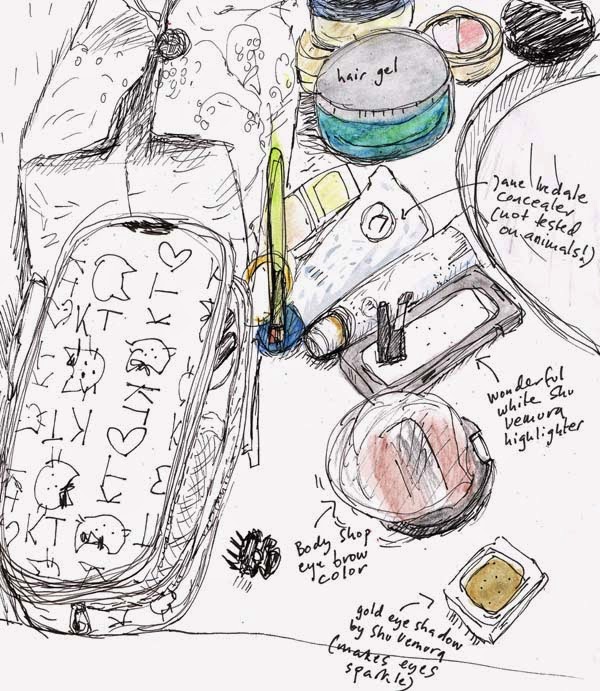 hair gel
Jane Iredale
concealer
(not tested
on animals!)
wonderful
white Shu
Uemura
highlighter
Body Shop
eye brow
color
gold eye shadow
by Shu Uemura
(makes eyes
sparkle)
KT
KT
KT
KT
KT
KT